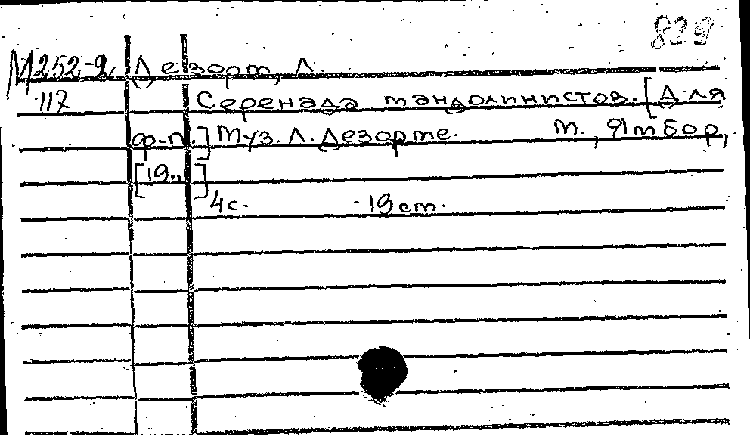 829
М252-9 Дезорт, Л.
117 Серенада мандолинистов. [Для
ф-п.] Муз. Л. Дезорте. М., Ямбор,
[19..]
4с. 19 см.